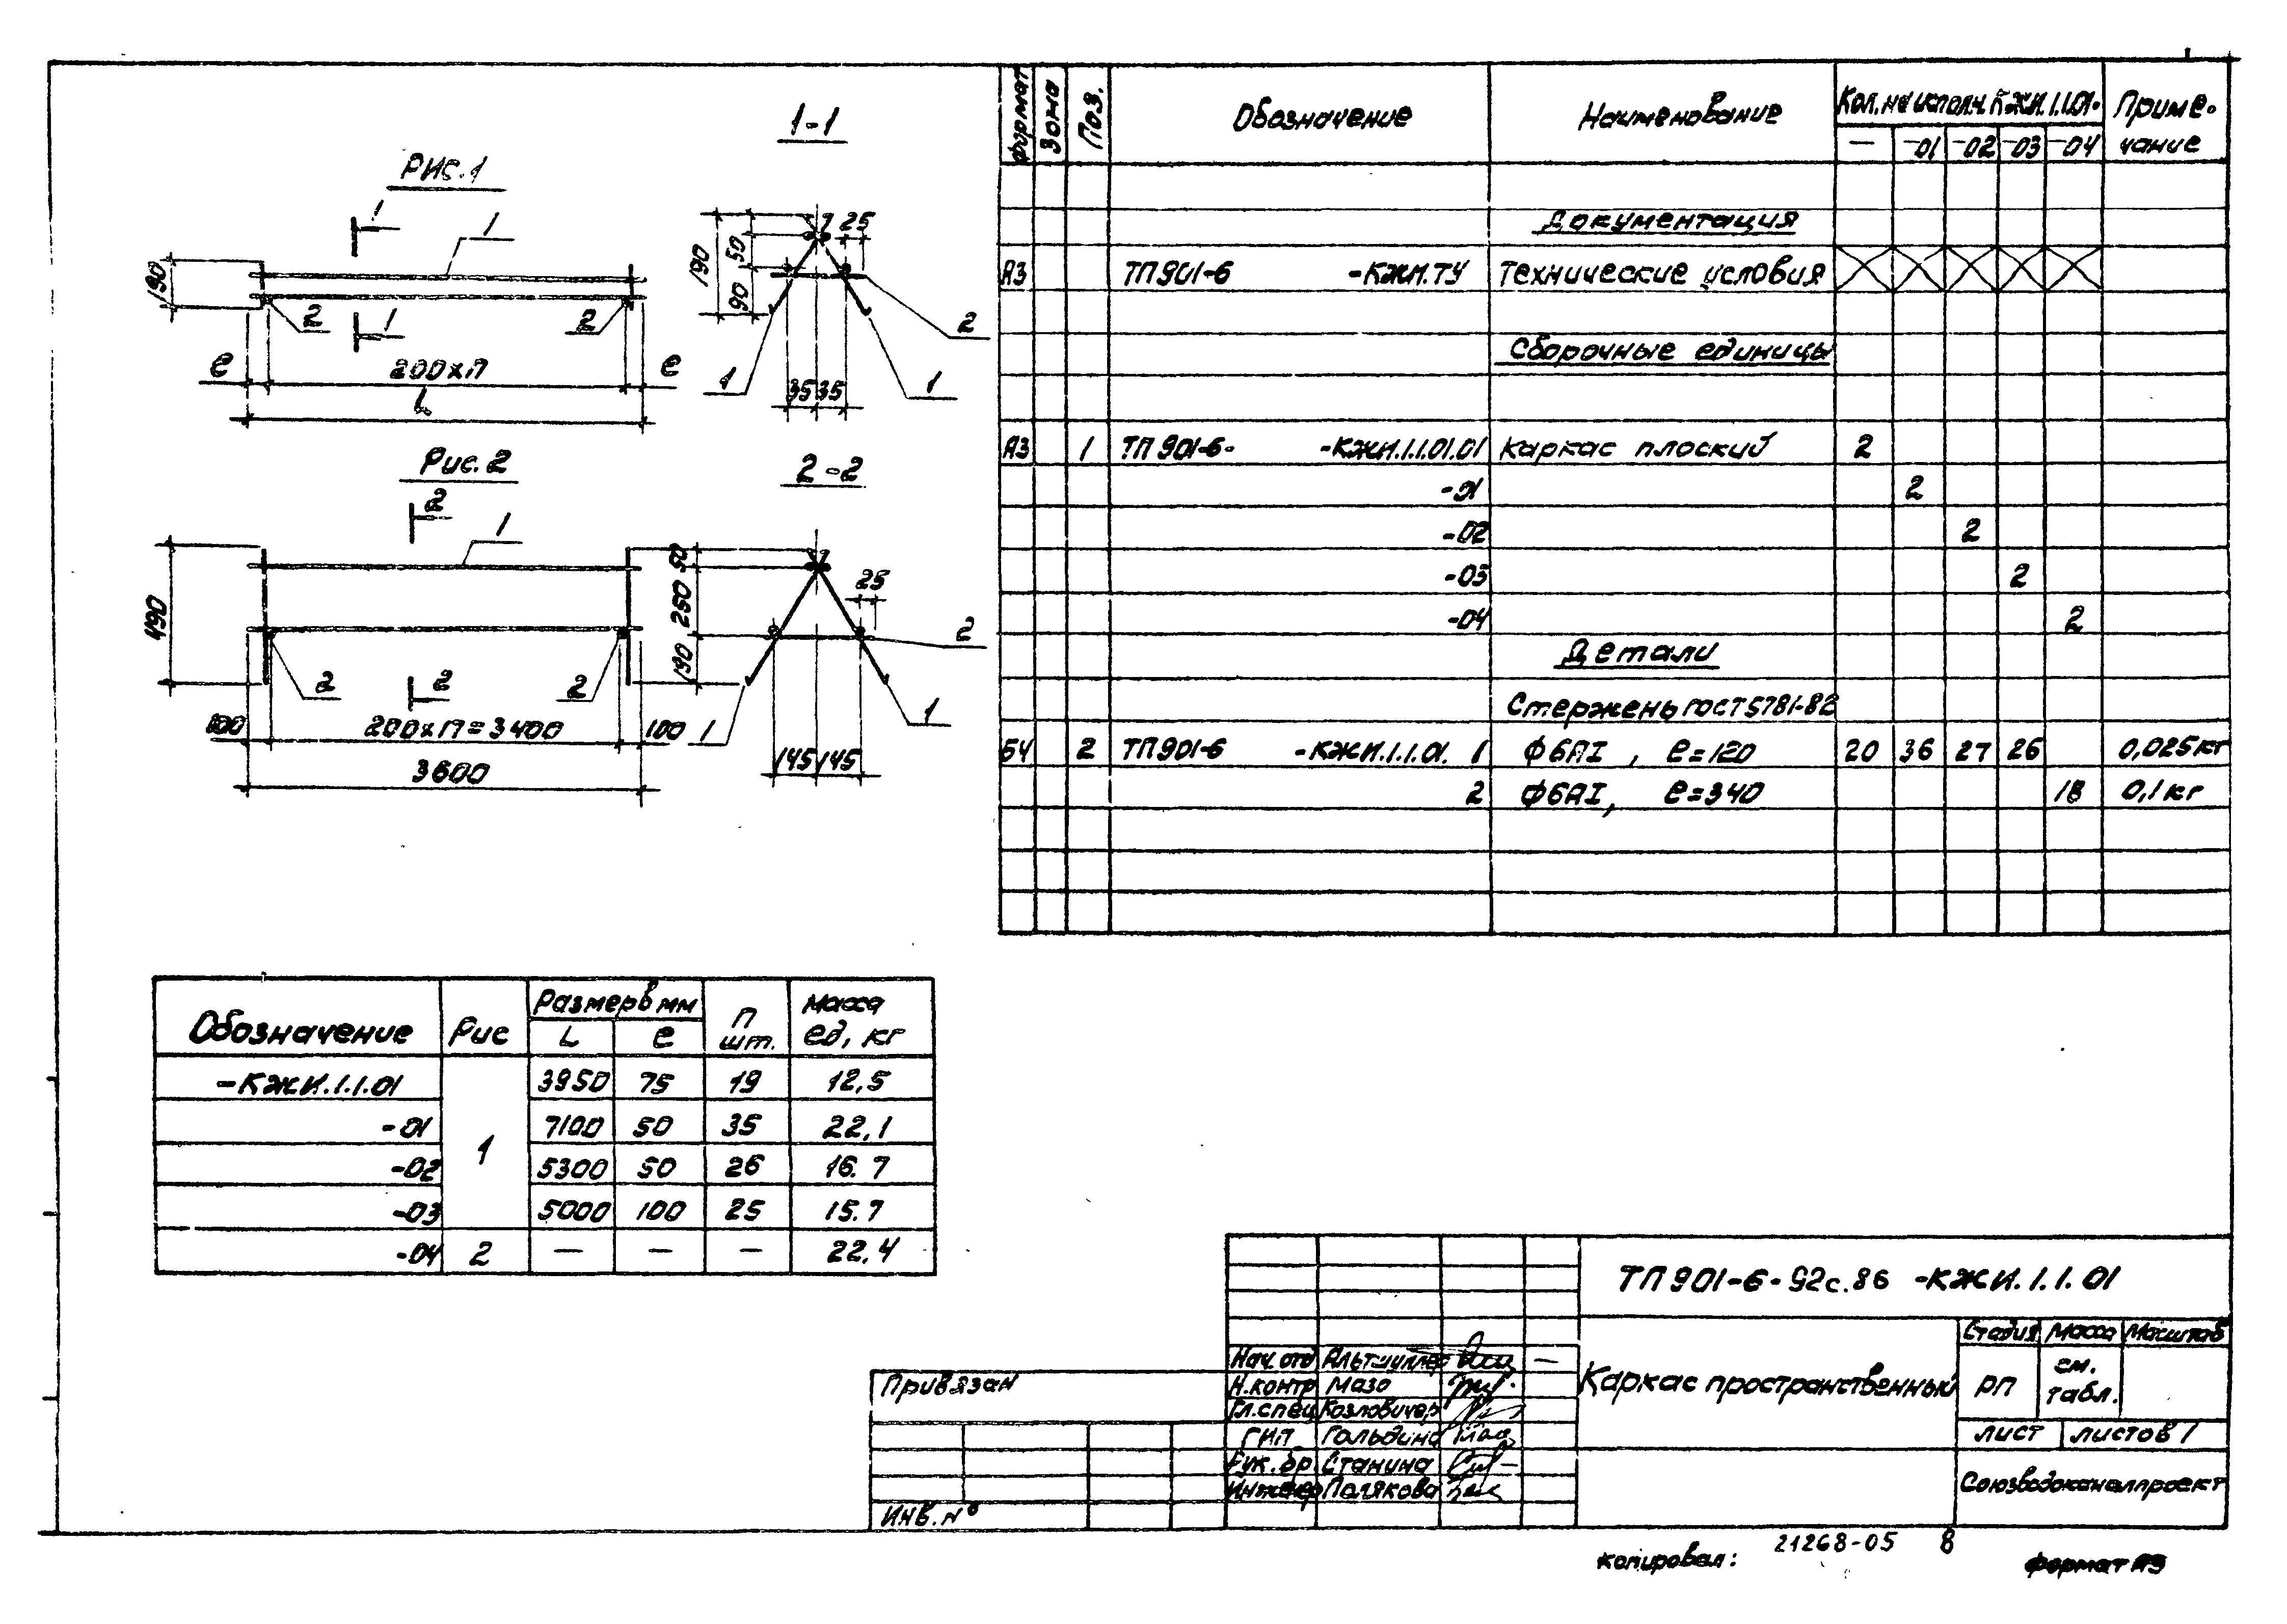 Рис.1
1-1
1
1
190
2
2
1
е
200хп
е
L
190
50
90
25
2
1
35 35
1
Рис.2
2-2
2
1
490
2
2
2
100
200хп=3400
100
3600
50
250
190
25
2
1
1
145 145
Формат Зона Поз. Обозначение Наименование Кол. на исполн. КЖИ.1.1.01- Приме-
чание
— -01 -02 -03 -04
Документация
А3 ТП901-6 -КЖИ.ТУ Технические условия
Сборочные единицы
А3 1 ТП901-6- -КЖИ.1.1.01.01 Каркас плоский 2
-01 2
-02 2
-03 2
-04 2
Детали
Стержень ГОСТ5781-82
БЧ 2 ТП901-6 -КЖИ.1.1.01. 1 ф6АI, е=120 20 36 27 26 0,025кг
2 ф6АI, е=340 18 0,1кг
Обозначение Рис Размер в мм п шт. Масса ед, кг
L е
-КЖИ.1.1.01 1 3950 75 19 12,5
-01 7100 50 35 22,1
-02 5300 50 26 16.7
-03 5000 100 25 15.7
-04 2 — — — 22,4
ТП901-6-92с.86 -КЖИ.1.1.01
Каркас пространственный
Стадия Масса Масштаб
РП см. табл.
Лист Листов 1
Союзводоканалпроект
Нач.отд Альтшуллер
Н.контр Мазо
Гл.спец Козловичер
ГИП Гольдина
Рук.бр Станина
Инженер Полякова
Привязан
Инв.№
копировал: 21268-05 8 формат А3